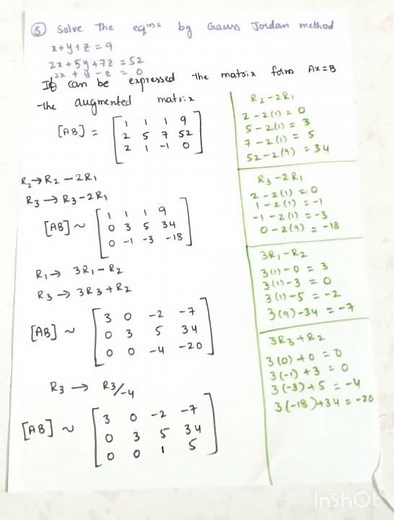 ⑤ Solve The eqins by Gauss Jordan method
x+y+z=9
2x+5y+7z=52
2x+y-z=0
It can be expressed the matrix form Ax=B
the augmented matrix
[AB] = [1 1 1 9
2 5 7 52
2 1 -1 0]
R2→R2-2R1
R3→R3-2R1
[AB] ~ [1 1 1 9
0 3 5 34
0 -1 -3 -18]
R1→ 3R1-R2
R3→ 3R3+R2
[AB] ~ [3 0 -2 -7
0 3 5 34
0 0 -4 -20]
R3 → R3/-4
[AB] ~ [3 0 -2 -7
0 3 5 34
0 0 1 5]
R2-2R1
2-2(1)=0
5-2(1)=3
7-2(1)=5
52-2(9)=34
R3-2R1
2-2(1)=0
1-2(1)=-1
-1-2(1)=-3
0-2(9)=-18
3R1-R2
3(1)-0=3
3(1)-3=0
3(1)-5=-2
3(9)-34=-7
3R3+R2
3(0)+0=0
3(-1)+3=0
3(-3)+5=-4
3(-18)+34=-20
InShOt